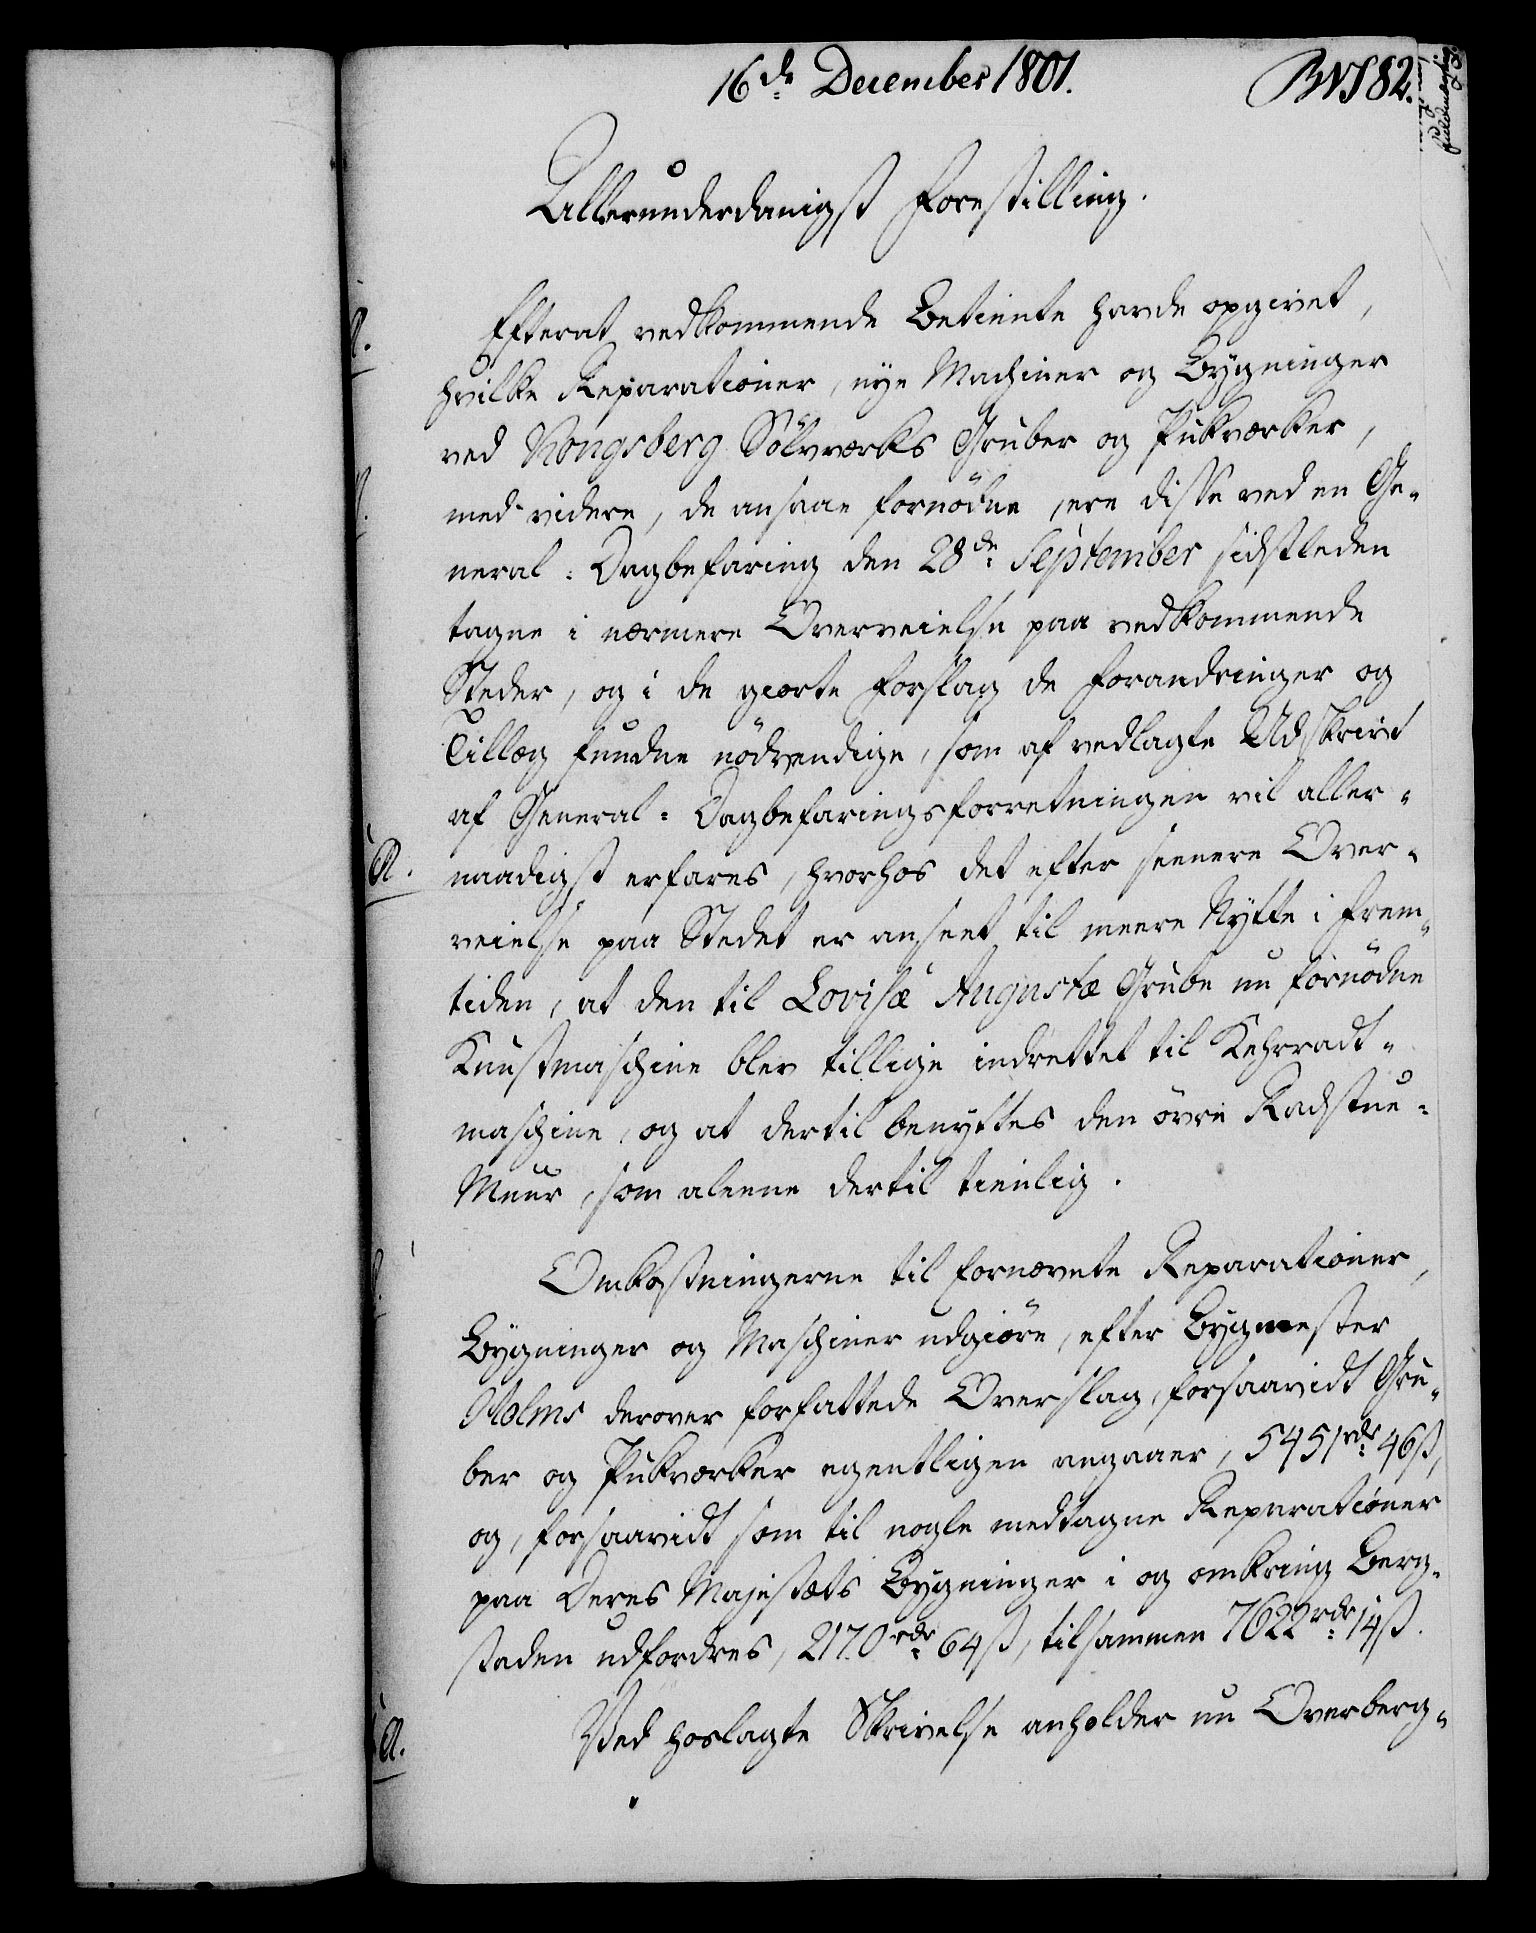 16de December 1801. BVS 82.
Allerunderdanigst Forestilling.
Efterat vedkommende Betiente havde opgivet,
hvilke Reparationer, nye Machiner og Bygninger
ved Kongsberg Sölvværks Gruber og Pukværker,
med videre, de ansaae fornödne, ere disse ved en Ge-
neral-Dagbefaring den 28de September sidstleden
tagne i nærmere Overveielse paa vedkommende
Steder, og i de giorte Forslag de Forandringer og
Tillæg fundne nödvendige, som af vedlagte Udskrivt
af General-Dagbefaringsforretningen vil aller-
A. naadigst erfares, hvorhos det efter seenere Over-
veielse paa Stedet er anseet til meere Nytte i Frem-
tiden, at den til Lovisæ Augustæ Grube nu fornödne
Kunstmaschine blev tillige indrettet til Kehrradt-
maschine, og at dertil benyttes den övre Radstue-
Muur, som aleene dertil tienlig.
Omkostningerne til fornævnte Reparationer,
Bygninger og Maschiner udgiöre, efter Bygmester
Holms derover forfattede Overslag, forsaavidt Gru-
ber og Pukværker egentligen angaaer, 5451 rdr 46 ß,
og, forsaavidt som til nogle medtagne Reparationer
paa Deres Majestæts Bygninger i og omkring Berg-
staden udfordres, 2170 rdr 64 ß, tilsammen 7622 rdr 14 ß.
A. Ved hoslagte Skrivelse anholder nu Overberg-